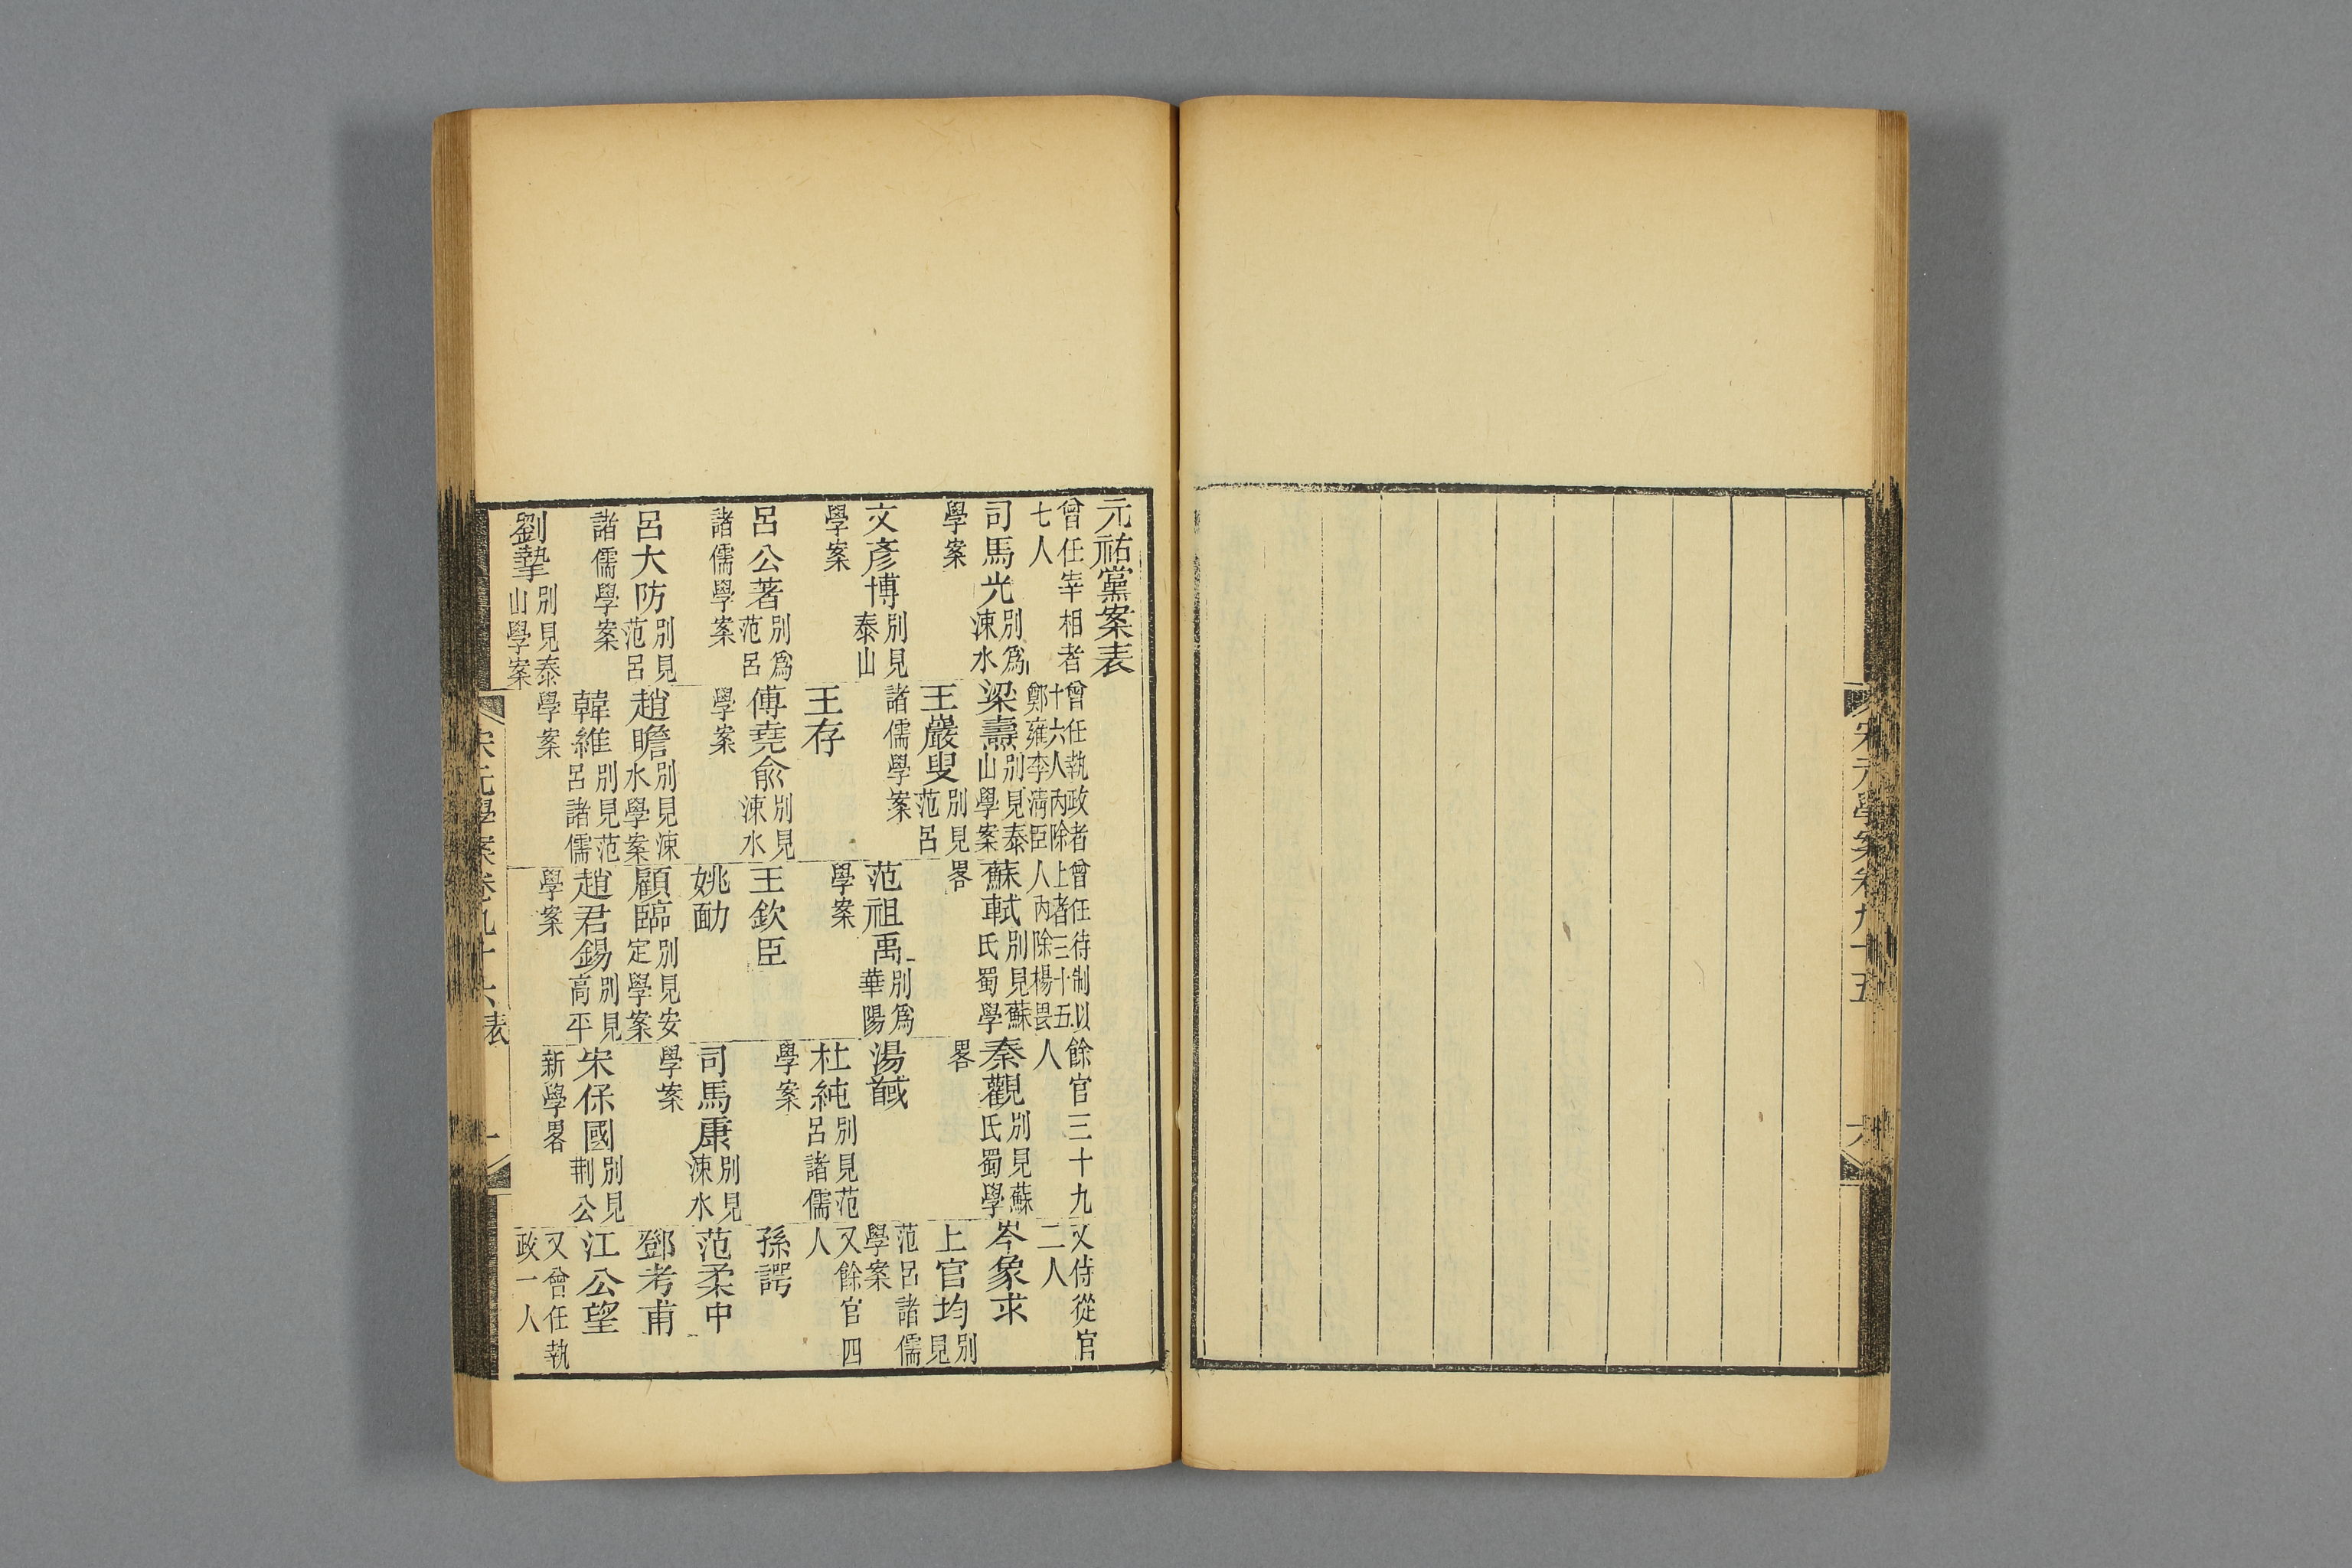 宋元學案卷九十五
六
元祐黨案表
曾任宰相者七人
司馬光別爲涑水學案
文彥博別見泰山學案
呂公著別爲范呂諸儒學案
呂大防別見范呂諸儒學案
劉摯別見泰山學案
曾任執政者十六人內除鄭雍李淸臣
梁燾別見泰山學案
王巖叟別見范呂諸儒學案
王存
傅堯俞別見涑水學案
趙瞻別見涑水學案
韓維別見范呂諸儒學案
曾任待制以上者三十五人內除楊畏
蘇軾別見蘇氏蜀學畧
范祖禹別爲華陽學案
王欽臣
姚勔
顧臨別見安定學案
趙君錫別見高平學案
餘官三十九人
秦觀別見蘇氏蜀學畧
湯馘
杜純別見范呂諸儒學案
司馬康別見涑水學案
宋保國別見荆公新學畧
又侍從官二人
岑象求
上官均別見范呂諸儒學案
又餘官四人
孫諤
范柔中
鄧考甫
江公望
又曾任執政一人
宋元學案卷九十六表
一